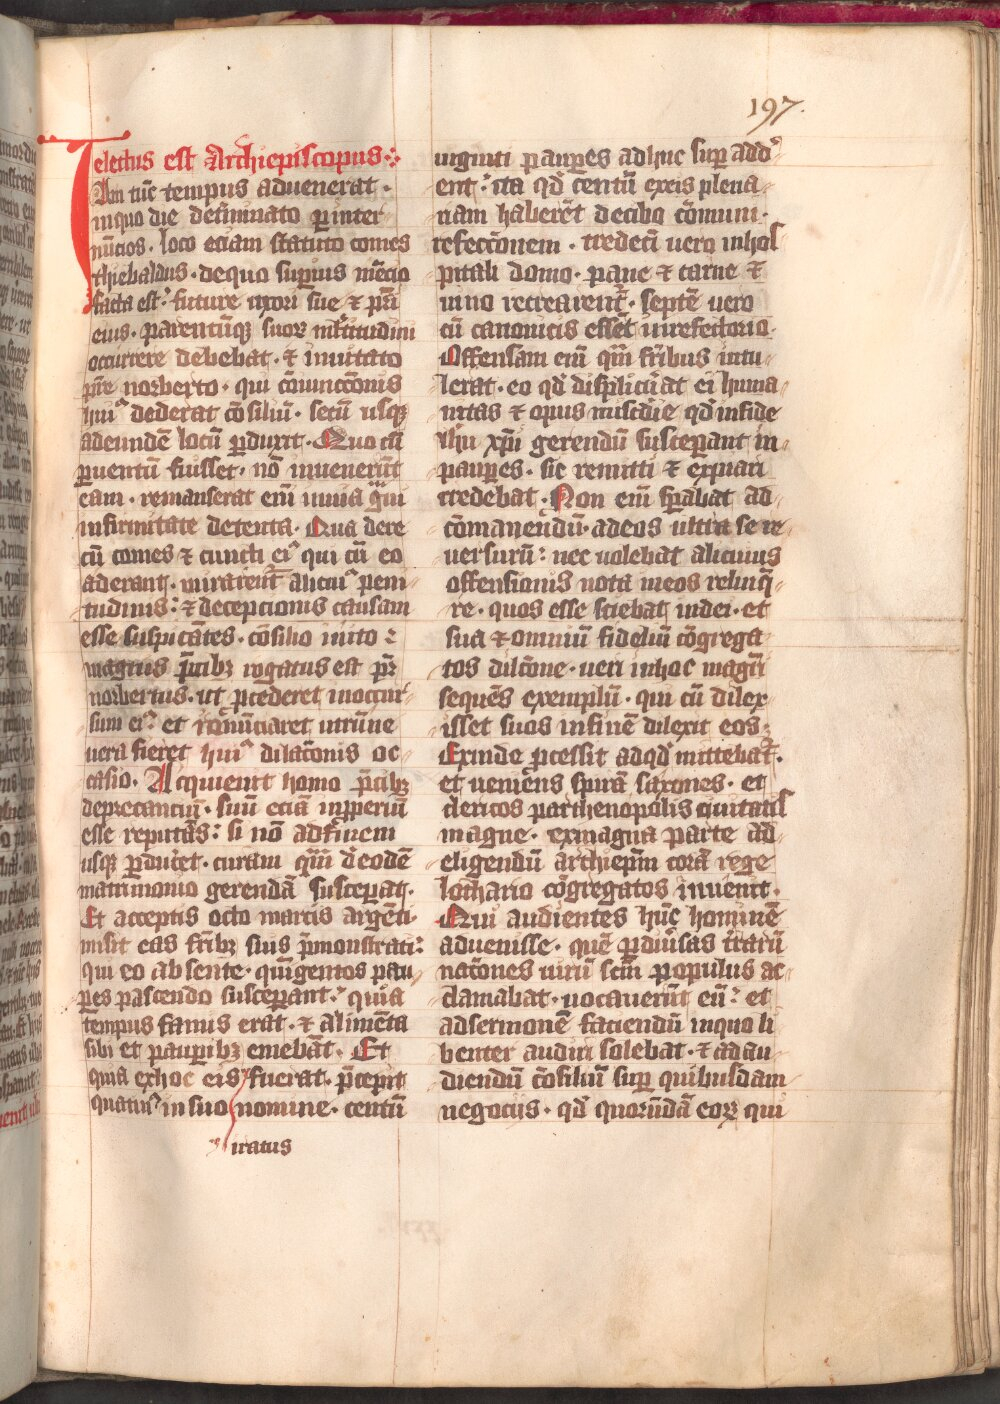 197.
electus est Archiepiscopus
Iam tūc tempus aduenerat ·
inquo die determinato ꝑ inter
nūcios · loco eciam statuto comes
thiebaldus · dequo suꝑius mēcio
facta est : future uxori sue ⁊ pr̄i
eius · parentūqꝫ suoꝝ ml̄titudini
occurrere debebat · ⁊ inuitato
pr̄e norberto · qui cōiuncc̄onis
huiꝰ dederat cōsiliū · secū usqꝫ
adeundē locū ꝑduxit · Quo cū
ꝑuentū fuisset · nō inuenerūt
eam · remanserat eni᷈ inuia gͣui
infirmitate detenta · Qua de re
cū comes ⁊ cuncti eiꝰ qui cū eo
aderant · mirarent᷑ alicuiꝰ peni
tudinis : ⁊ decepcionis causam
esse suspicātes · cōsilio inito :
magnis p̄cibꝫ rogatus est pr̄
norbertus · ut p̄cederet inoccur
sum eiꝰ · et renūnciaret utrū ne
uera fieret huiꝰ dilac̄onis oc
casio · Acquieuit homo p̄cibꝫ
deprecanciū · suū eciā inꝓperiū
esse reputās : si nō adfinem
usqꝫ ꝑducet · curam quā deeodē
matrimonio gerendā susceꝑat ·
Et acceptis octo marcis argēti ·
misit eas fr̄ibꝫ suis p̄monstrati :
qui eo absente · quīgentos pau
ꝑes pascendo susceꝑant · quia
tempus famis erat · ⁊ alimēta
sibi et pauꝑibꝫ emebāt · Et
quia exhoc eis fuerat · p̄cepit
quatinꝰ in suo nomine · centū
iratus
uiginti pauꝑes adhuc suꝑ add᷑
ent : ita qd̄ centū exeis plena
riam haberēt decibo cōmuni ·
refecc̄onem · tredecī uero inhos
pitali domo · pane ⁊ carne ⁊
uino recrearent᷑ · septē uero
cū canonicis essēt inrefectorio ·
Offensam eni᷈ quā fr̄ibus intu
lerat · eo qd̄ displicuīat ei huma
nitas ⁊ opus misc̄die qd̄ infide
ihū xp̄i gerendū susceꝑant in
pauꝑes · sic remitti ⁊ expiari
credebat · Non eni᷈ sꝑabat ad
cōmanendū · adeos ultra se re
uersurū : nec uolebat alicuius
offensionis nota ineos relinq̄
re · quos esse sciebat indei · et
sua ⁊ omniū fideliū cōgrega
tos dilc̄one · ueri inhoc magr̄i
sequēs exemplū · qui cū dilex
isset suos infinē dilexit eos :
Exinde ꝓcessit adqd̄ mittebat᷑ ·
et ueniēns spirā saxones · et
clericos parthenopolis ciuitatis
magne · exmagna parte ad
eligendū archiep̄m corā rege
lothario cōgregatos inuenit ·
Qui audientes hūc hominē
aduenisse · quē ꝑdiu᷑sas tr̄arū
nac̄ones uirū sc̄m populus ac
clamabat · uocauerūt eū : et
adsermonē faciendū inquo li
benter audiri solebat · ⁊ adau
diendū cōsiliū suꝑ quibusdam
negociis · qd̄ quorūdā eoꝝ qui